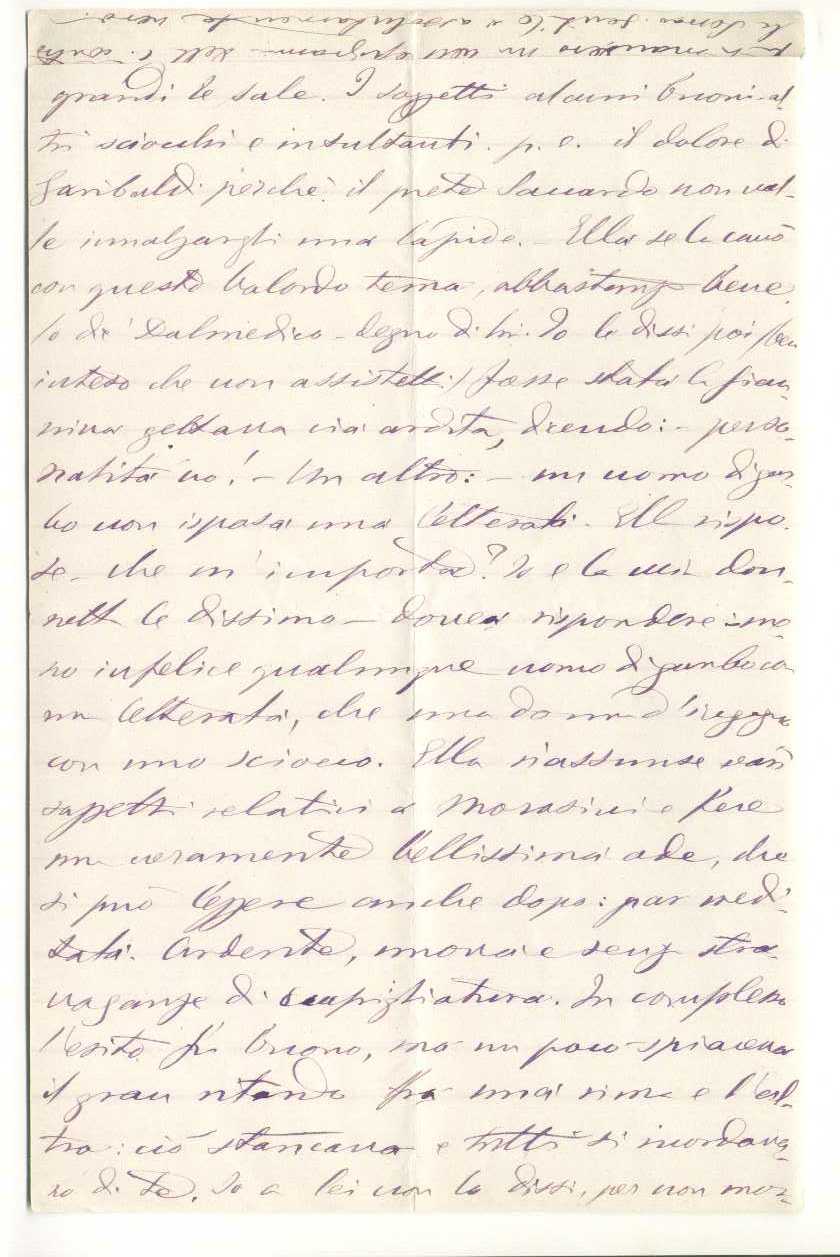 grandi le sale. I soggetti alcuni buoni al-
tri sciochi e insultanti. p. e. il dolore di
Garibaldi perchè il prete non vol-
le innalzargli una lapide. - Ella se la cavò
con questo balordo tema, abbastanza bene.
lo diè Dalmedico - degno di lui. Io le dissi poi (ben
inteso che non assistetti) fosse stata la Gian-
nina gettava via ardita, dicendo: - perso-
nalità no! - Un altro: - un uomo di gar-
bo non isposa una letterata. Ell rispo-
se - che m'importa? Io e la mia don-
nett le dissimo - dovea rispondere: - me-
no infelice qualunque uomo di garbo con
una letterata, che una donna d'ingegno
con uno sciocco. Ella riassunse varii
sogetti relativi a Morosini e fece
una veramente bellissima ode, che
si può leggere anche dopo: par medi-
tata. Ardente, nuova e senza stra-
vaganze di scapigliatura. In complesso
l'esito fu buono, ma un poco spiaceva
il gran ritardo fra una rima e l'al-
tra: ciò stancava e tutti si ricordava-
no di te. Io a lei non lo dissi, per non mor-